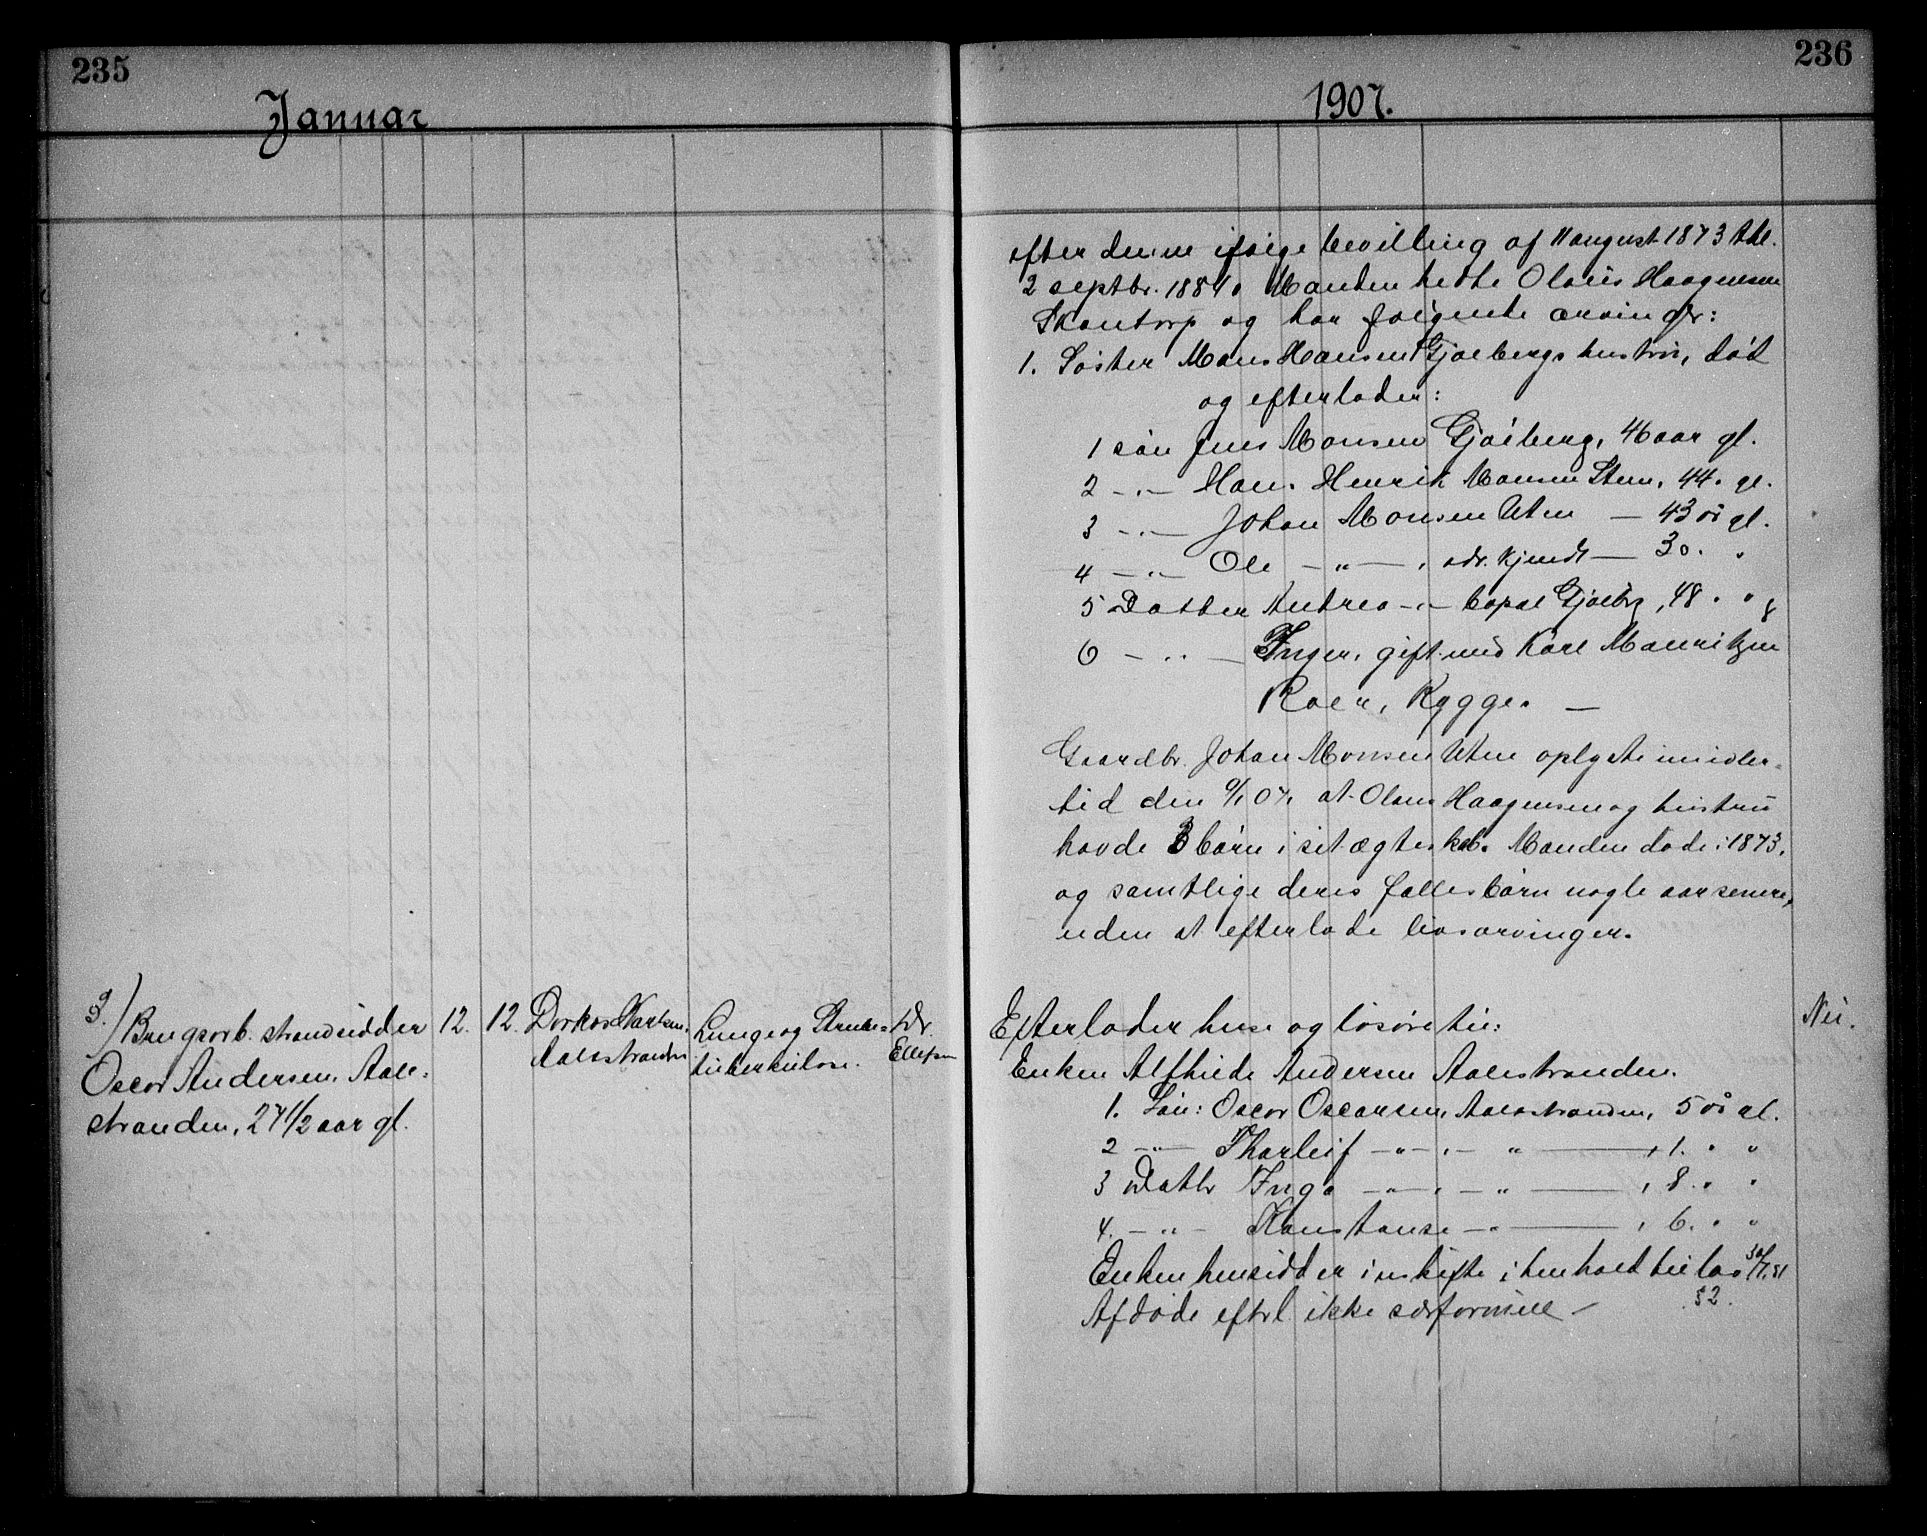 235
Januar
3.) Brugsarb. strandsidder
Oscar Andersen, Aale-
stranden, 27 1/2 aar gl.
12.
12.
Dorkas
Aalestranden
Lunge og Strube-
tuberkulose.
Dr.
Ellefsen
236
1907.
efter denne ifølge bevilling af 11 august 1873 thl.
2 septbr. 1881. Manden hedte Olaus Haagensen
Skantorp og har følgende arvinger:
1. Søster Mons Hansen Gjølbergs hustru, død
og efterlader:
1 søn Jens Monsen Gjølberg, 46 aar gl.
2 -"- Hans Henrik Monsen Steen, 44 " gl.
3 -"- Johan Monsen Uten - 43 år gl.
4 -"- Ole -"- , adr. kjendt - 30 " "
5 Datter Andrea -"- Gjølbg, 48 " "
6 -"- Inger, gift med Karl Mauritzen
Roer, Rygge. -
Gaardbr. Johan Monsen Uten oplyste imidler-
tid den 9/1 07, at Olaus Haagensen og hustru
havde 3 børn i sit ægteskab. Manden døde i 1873,
og samtlige deres fælles børn nogle aar senere,
uden at efterlade livsarvinger.
Efterlader huse og løsøre til:
Enken Alfhilde Andersen Aalestranden.
1. Søn: Oscar Oscarsen, Aalestranden, 5 år gl.
2 -"- Tharleif -"- " -"- , 1. " "
3 Dattr Inga -"- " -"- , 8. " "
4. -"- Konstanse -"- , 6. " "
Enken hensidder i uskifte i henhold til lov 30/7, 51
§ 2.
Afdøde efterl ikke særformue -
Nei.